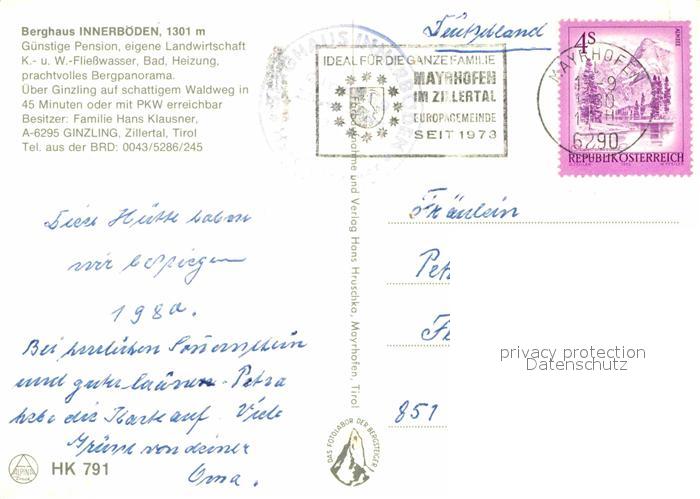 Berghaus INNERBÖDEN, 1301 m
Günstige Pension, eigene Landwirtschaft
K.- u. W.-Fließwasser, Bad, Heizung,
prachtvolles Bergpanorama.
Über Ginzling auf schattigem Waldweg in
45 Minuten oder mit PKW erreichbar
Besitzer: Familie Hans Klausner,
A-6295 GINZLING, Zillertal, Tirol
Tel. aus der BRD: 0043/5286/245
Deutschland
IDEAL FÜR DIE GANZE FAMILIE
MAYRHOFEN
IM ZILLERTAL
EUROPAGEMEINDE
SEIT 1973
MAYRHOFEN
6290
4s
ALMSEE
REPUBLIK ÖSTERREICH
Diese Hütte haben
wir bestiegen
1980.
Bei herrlichen Sonnenschein
und guter Laune. Petra
hebe die Karte auf. Viele
Grüße von deiner
Oma.
nahme und Verlag Hans Hruschka, Mayrhofen, Tirol
Fräulein
Pet
F
851
privacy protection
Datenschutz
DAS FOTOLABOR DER BERGSTEIGER!
ALPINA
Druck
HK 791